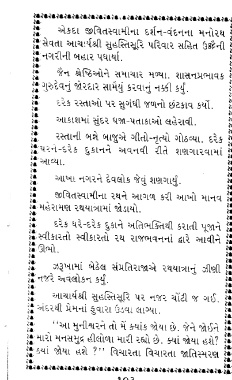 એકદા જીવિતસ્વામીના દર્શન-વંદનના મનોરથ
સેવતા આચાર્યશ્રી સુહસ્તિસૂરિ પરિવાર સહિત ઉજ્જૈની
નગરીની બહાર પધાર્યા.
જૈન શ્રેષ્ઠિઓને સમાચાર મળ્યા. શાસનપ્રભાવક
ગુરુદેવનું જોરદાર સામૈયું કરવાનું નક્કી કર્યું.
દરેક રસ્તાઓ પર સુગંધી જળનો છંટકાવ કર્યો.
આકાશમાં સુંદર ધજા-પતાકાઓ લહેરાવી.
રસ્તાની બન્ને બાજુએ ગીતો-નૃત્યો ગોઠવ્યા. દરેક
ઘરને-દરેક દુકાનને અવનવી રીતે શણગારવામાં
આવ્યા.
આખા નગરને દેવલોક જેવું શણગાર્યું.
જીવીતસ્વામીના રથને આગળ કરી આખો માનવ
મહેરામણ રથયાત્રામાં જોડાયો.
દરેક ઘરે-દરેક દુકાને અતિભક્તિથી કરાતી પૂજાને
સ્વીકારતો સ્વીકારતો રથ રાજભવનનાં દ્વારે આવીને
ઊભો.
ઝરૂખામાં બેઠેલ સંપ્રતિરાજાએ રથયાત્રાનું ઝીણી
નજરે અવલોકન કર્યું.
આચાર્યશ્રી સુહસ્તિસૂરિ પર નજર ચોંટી જ ગઈ.
અંદરથી પ્રેમનાં ફુવારા ઉડવા લાગ્યા.
"આ મુનીશ્વરને તો મેં ક્યાંક જોયા છે. જેને જોઈને
મારો મનસમુદ્ર હીલોળા મારી રહ્યો છે. ક્યાં જોયા હશે?
ક્યાં જોયા હશે ?" વિચારતા વિચારતા જાતિસ્મરણ